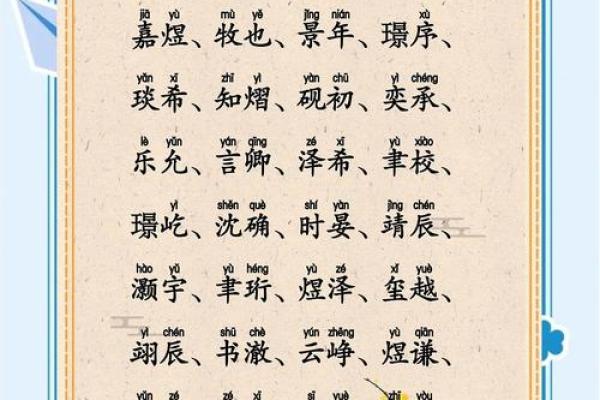 jiā yù mù yě jǐng nián xù
嘉煜、牧也、景年、璟序、
yǎn xī zhī yì yàn chū yì chéng
琰希、知熠、砚初、奕承、
lè yǔn yán qīng zé xī yù xiào
乐允、言卿、泽希、聿校、
yì shěn què shí yàn jìng chén
璟屹、沈确、时晏、靖辰、
hào yǔ yù héng yù zé xǐ yuè
灏宇、聿珩、煜泽、玺越、
yì chén shū chè yún zhēng yù qiān
翊辰、书澈、云峥、煜谦、
yǔn zé zé xī sī yuè zhī yòu